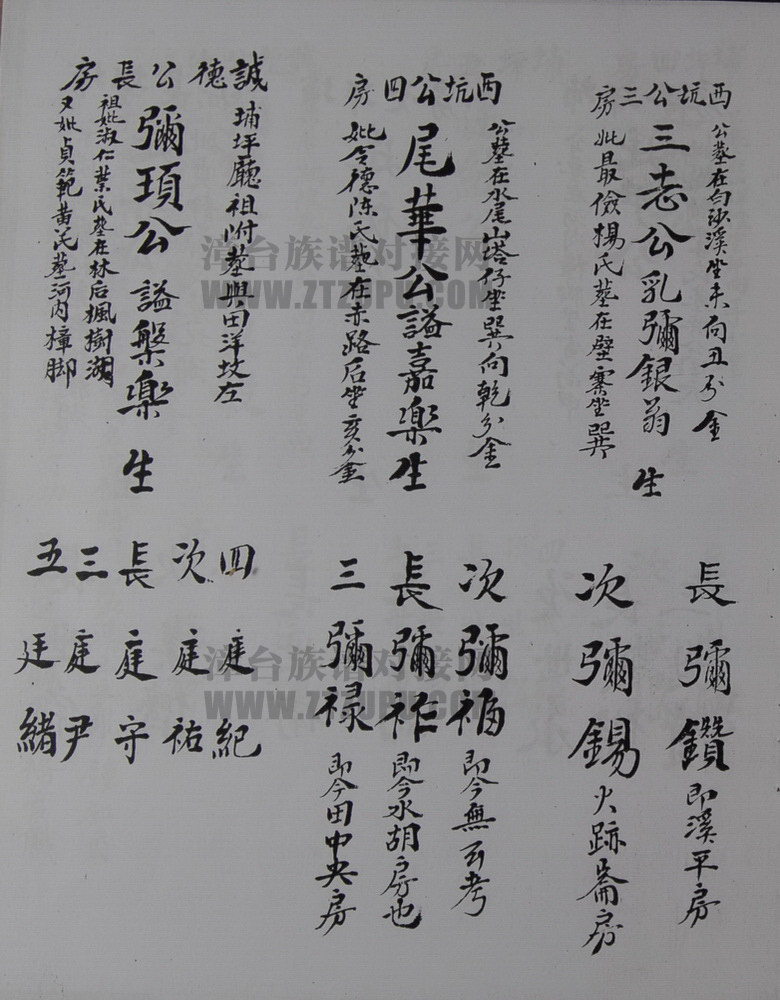 西坑公三房
公墓在白沙溪坐未向丑分金
三志公乳彌銀翁 生
妣最儉楊氏墓在壁寨坐巽
長彌鑽即溪平房
次彌錫火跡崙房
西坑公四房
公墓在水尾山塔仔坐巽向乾分金
尾華公謚嘉樂生
妣令德陈氏墓在赤路后坐亥分金
次彌福即今無可考
長彌祚即今水胡房也
三彌禄即今田中央房
誠德公長房
埔坪廳祖附墓與田洋坟左
彌頊公謚槃樂 生
祖妣淑仁葉氏墓在林后楓樹湖
又妣貞範黃氏墓河内樟脚
四庭紀
次庭祐
長庭守
三庭尹
五廷緒
漳台族谱对接网
WWW.ZTZUPU.COM
漳台族谱对接网
WWW.ZTZUPU.COM